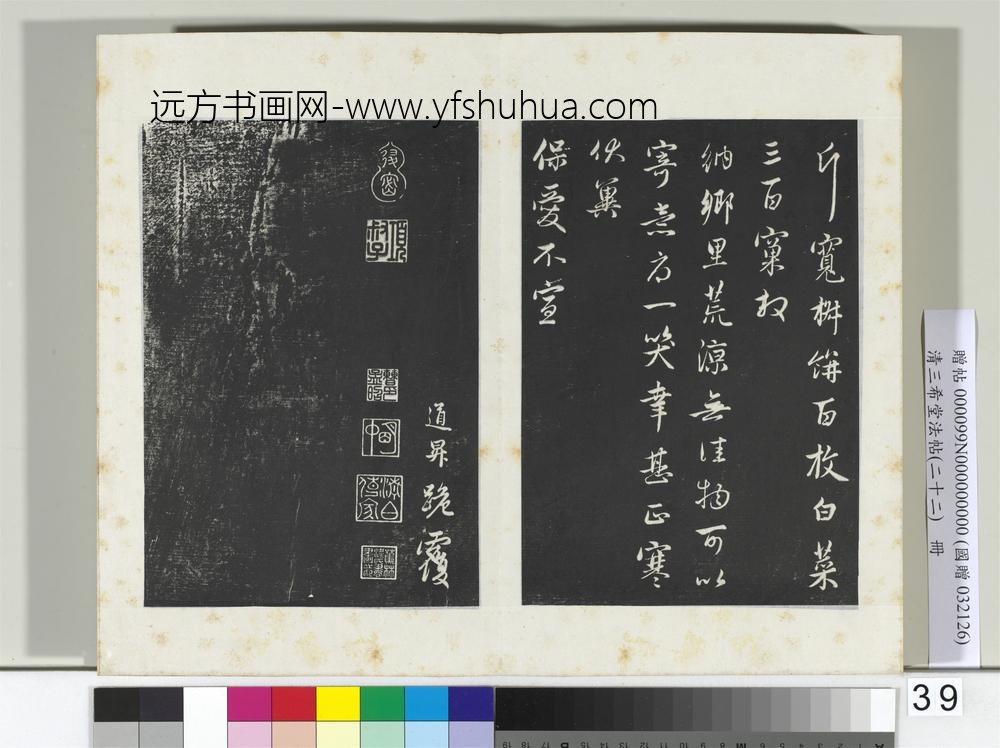 远方书画网-www.yfshuhua.com
斤寬栟餅百枚白菜
三百窠权
納鄉里荒凉無佳物可以
寄意方一笑幸甚正寒
伏冀
保愛不宣
道昇跪覆
項叔子
贈帖 000099N000000000 (國贈 032126)
清三希堂法帖(二十二) 冊
39